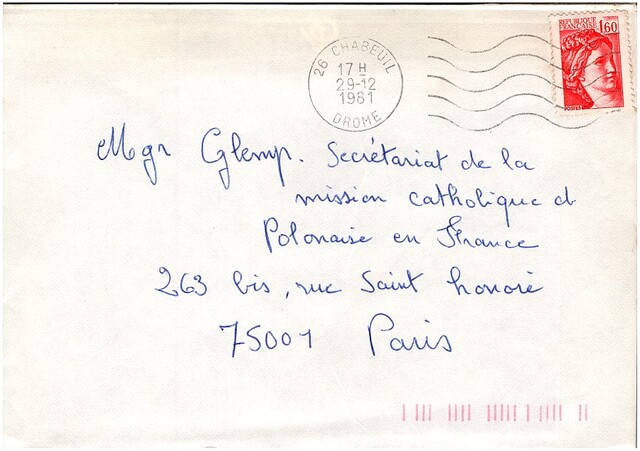 26 CHABEUIL
17 H
29-12
1981
DROME
REPUBLIQUE
FRANCAISE
1,60
POSTES
Mgr Glemp. Secrétariat de la
mission catholique d
Polonaise en France
263 bis, rue Saint honoré
75001 Paris